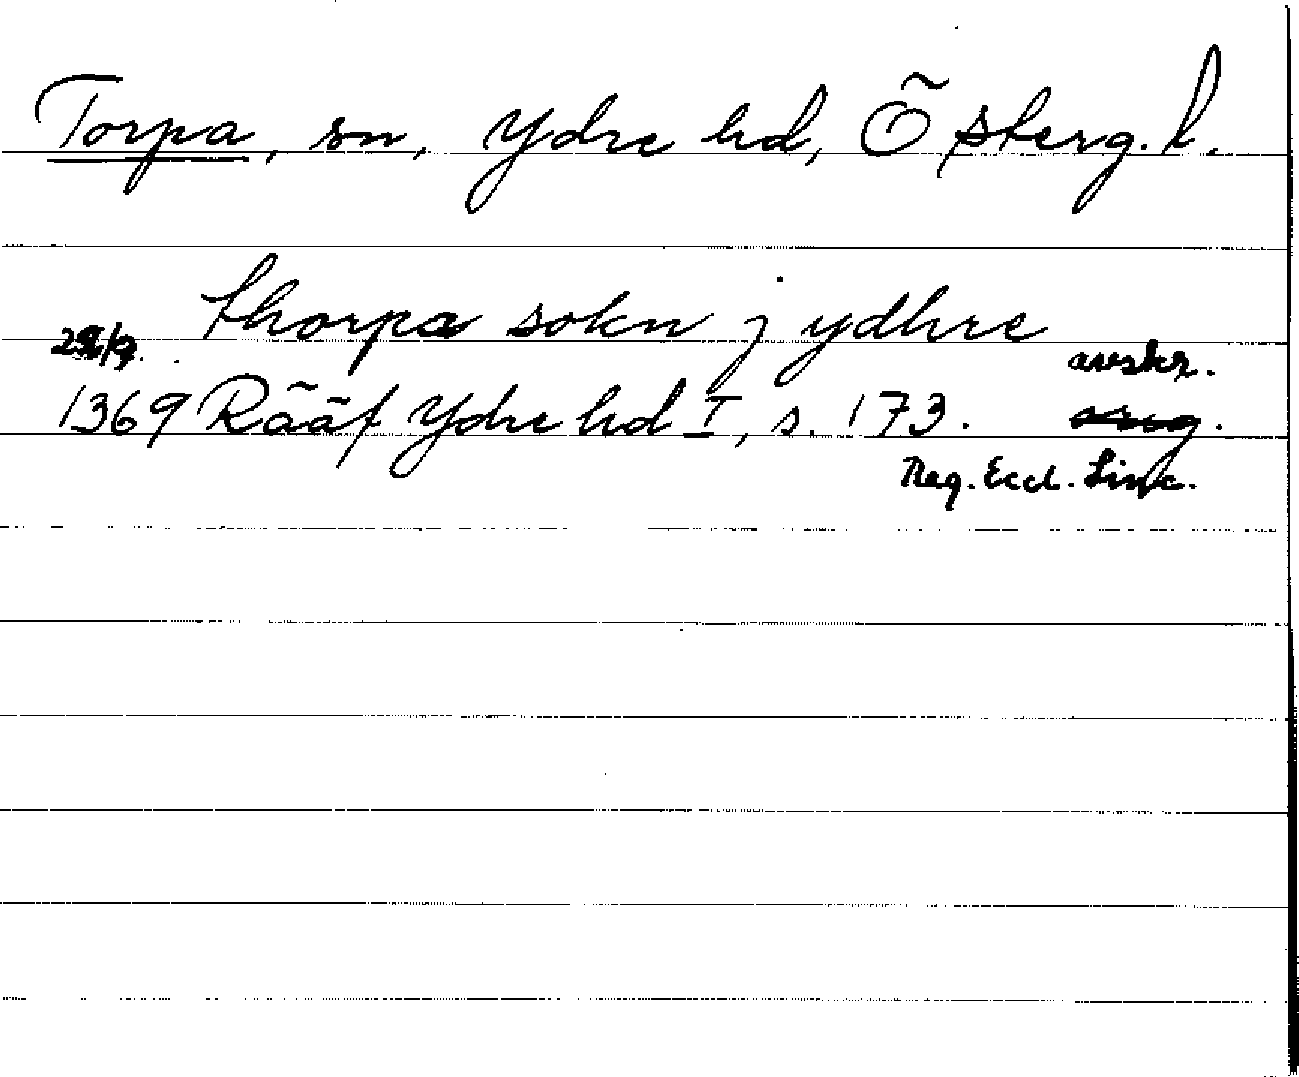 Torpa, sn, Ydre hd, Österg. l.
thorpa sokn j ydhre
29/9.
avskr.
1369 Rääf Ydre hd I, s. 173. orig.
Reg. Eccl. Linc.